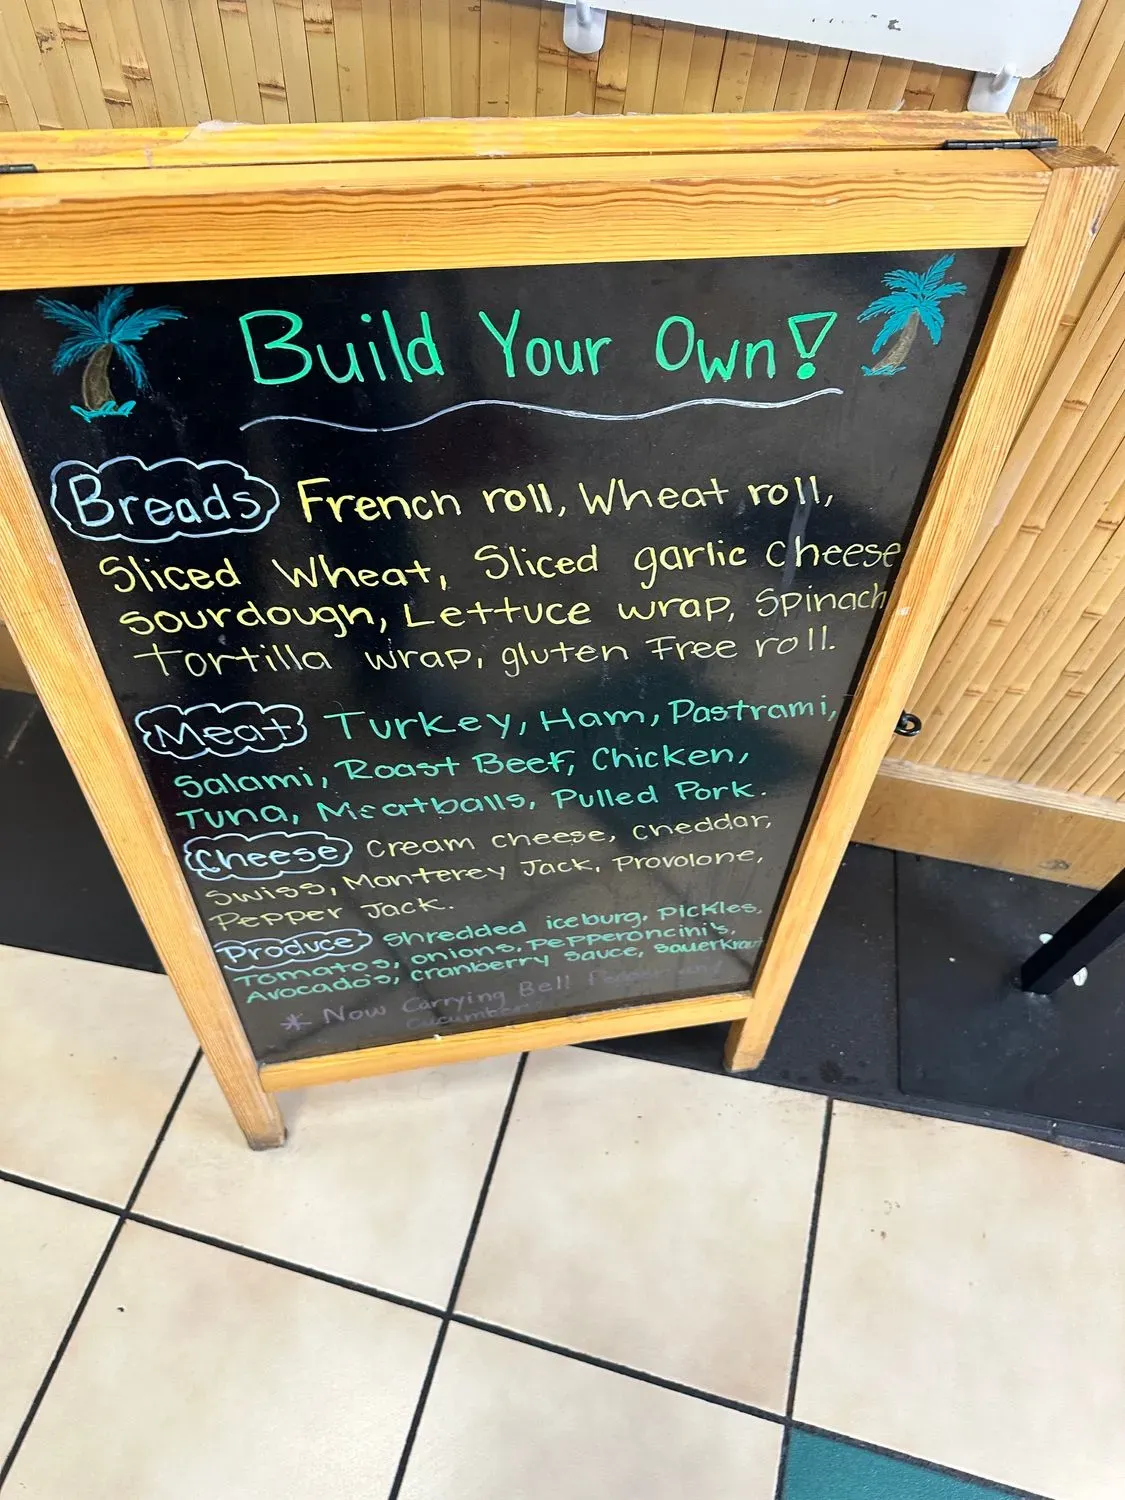 Build Your Own!
Breads French roll, Wheat roll,
Sliced Wheat, Sliced garlic cheese
sourdough, Lettuce wrap, Spinach
Tortilla wrap, gluten Free roll.
Meat Turkey, Ham, Pastrami,
Salami, Roast Beef, Chicken,
Tuna, Meatballs, Pulled Pork.
Cheese Cream cheese, Cheddar,
Swiss, Monterey Jack, Provolone,
Pepper Jack.
Produce Shredded iceburg, Pickles,
Tomatos, onions, Pepperoncini's,
Avocado's, cranberry sauce, sauerkraut
* Now Carrying Bell